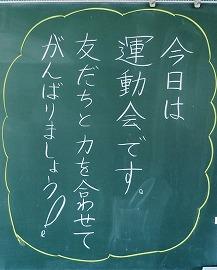 今日は
運動会です。
友だちと力を合わせて
がんばりましょう！